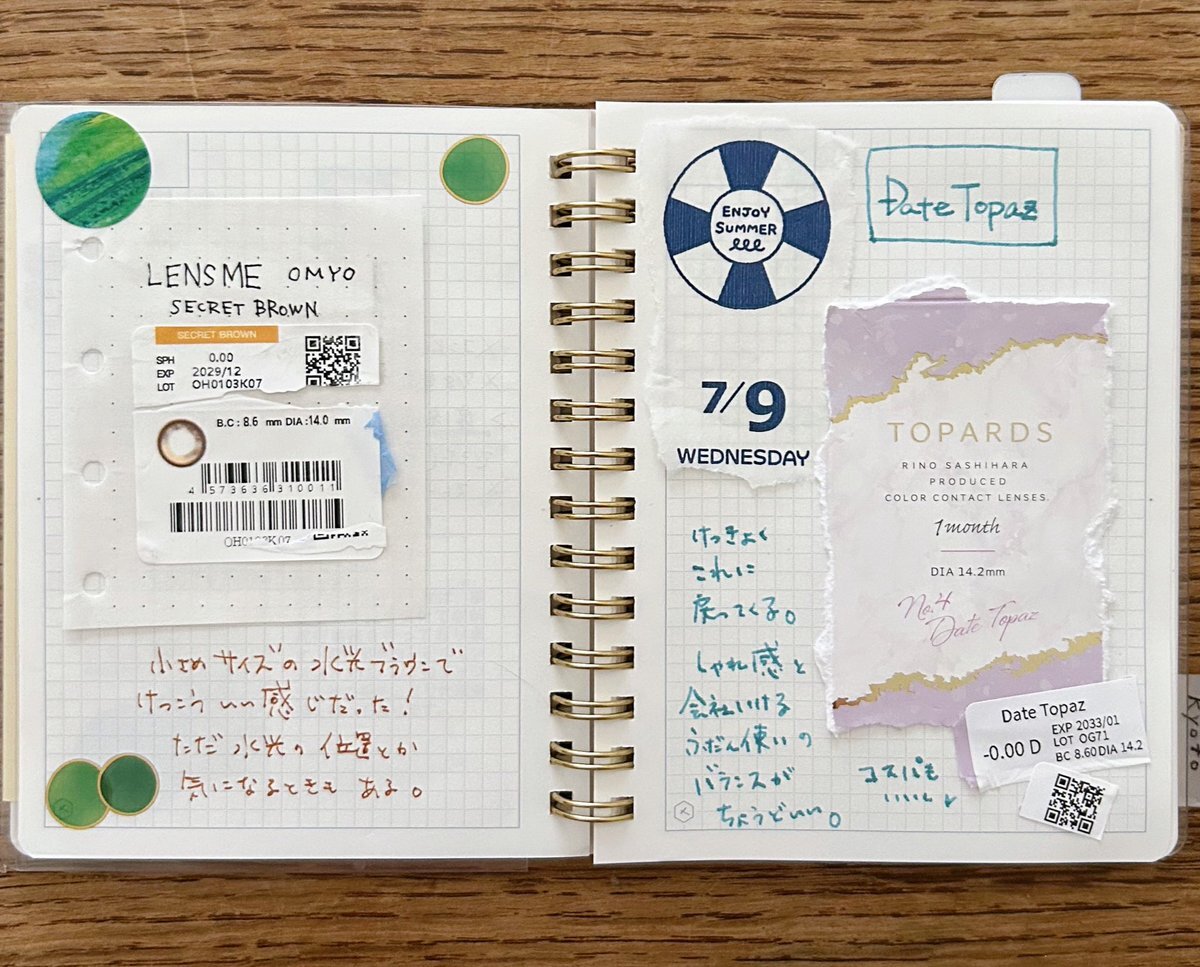 LENSME OMYO
SECRET BROWN
SECRET BROWN
SPH 0.00
EXP 2029/12
LOT OH0103K07
B.C : 8.6 mm DIA :14.0 mm
4 573636 310011
OH0103K07
小さめサイズの水光ブラウンで
けっこういい感じだった!
ただ水光の位置とか
気になるときも ある。
ENJOY
SUMMER
7/9
WEDNESDAY
Date Topaz
TOPARDS
RINO SASHIHARA
PRODUCED
COLOR CONTACT LENSES.
1month
DIA 14.2mm
No.4
Date Topaz
Date Topaz
-0.00 D
EXP 2033/01
LOT OG71
BC 8.60 DIA 14.2
けっきょく
これに
戻ってくる。
しゃれ感と
会社いける
ふだん使いの
バランスが
ちょうどいい。
コスパも
いいし
Kyoto